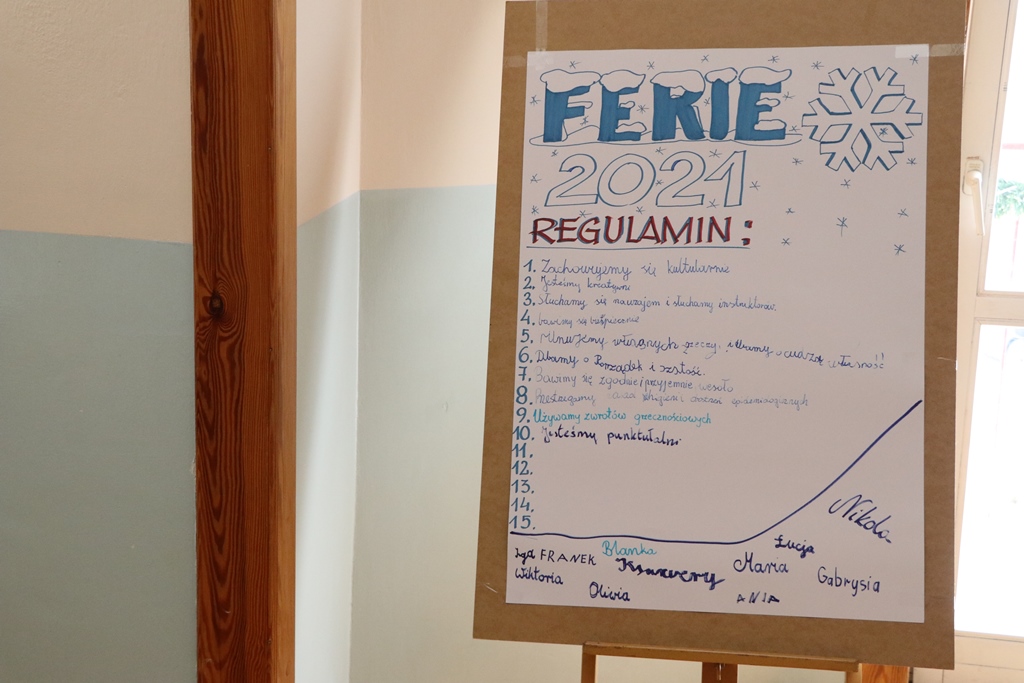 FERIE
2021
REGULAMIN:
1. Zachowujemy się kulturalnie
2. Jesteśmy kreatywni
3. Słuchamy się nawzajem i słuchamy instruktorów.
4. bawimy się bezpiecznie
5. własnych rzeczy, i dbamy o własność
6. Dbamy o Porządek i czstość.
7. Bawimy się zgodnie i przyjemnie wesoło
8. Przestrzegamy epidemiologicznych
9. Używamy zwrotów grzecznościowych
10. Jesteśmy punktualni
11.
12.
13.
14.
15.
Nikola
Łucja
FRANEK Blanka Ksawery Maria Gabrysia
Wiktoria Oliwia ANIA